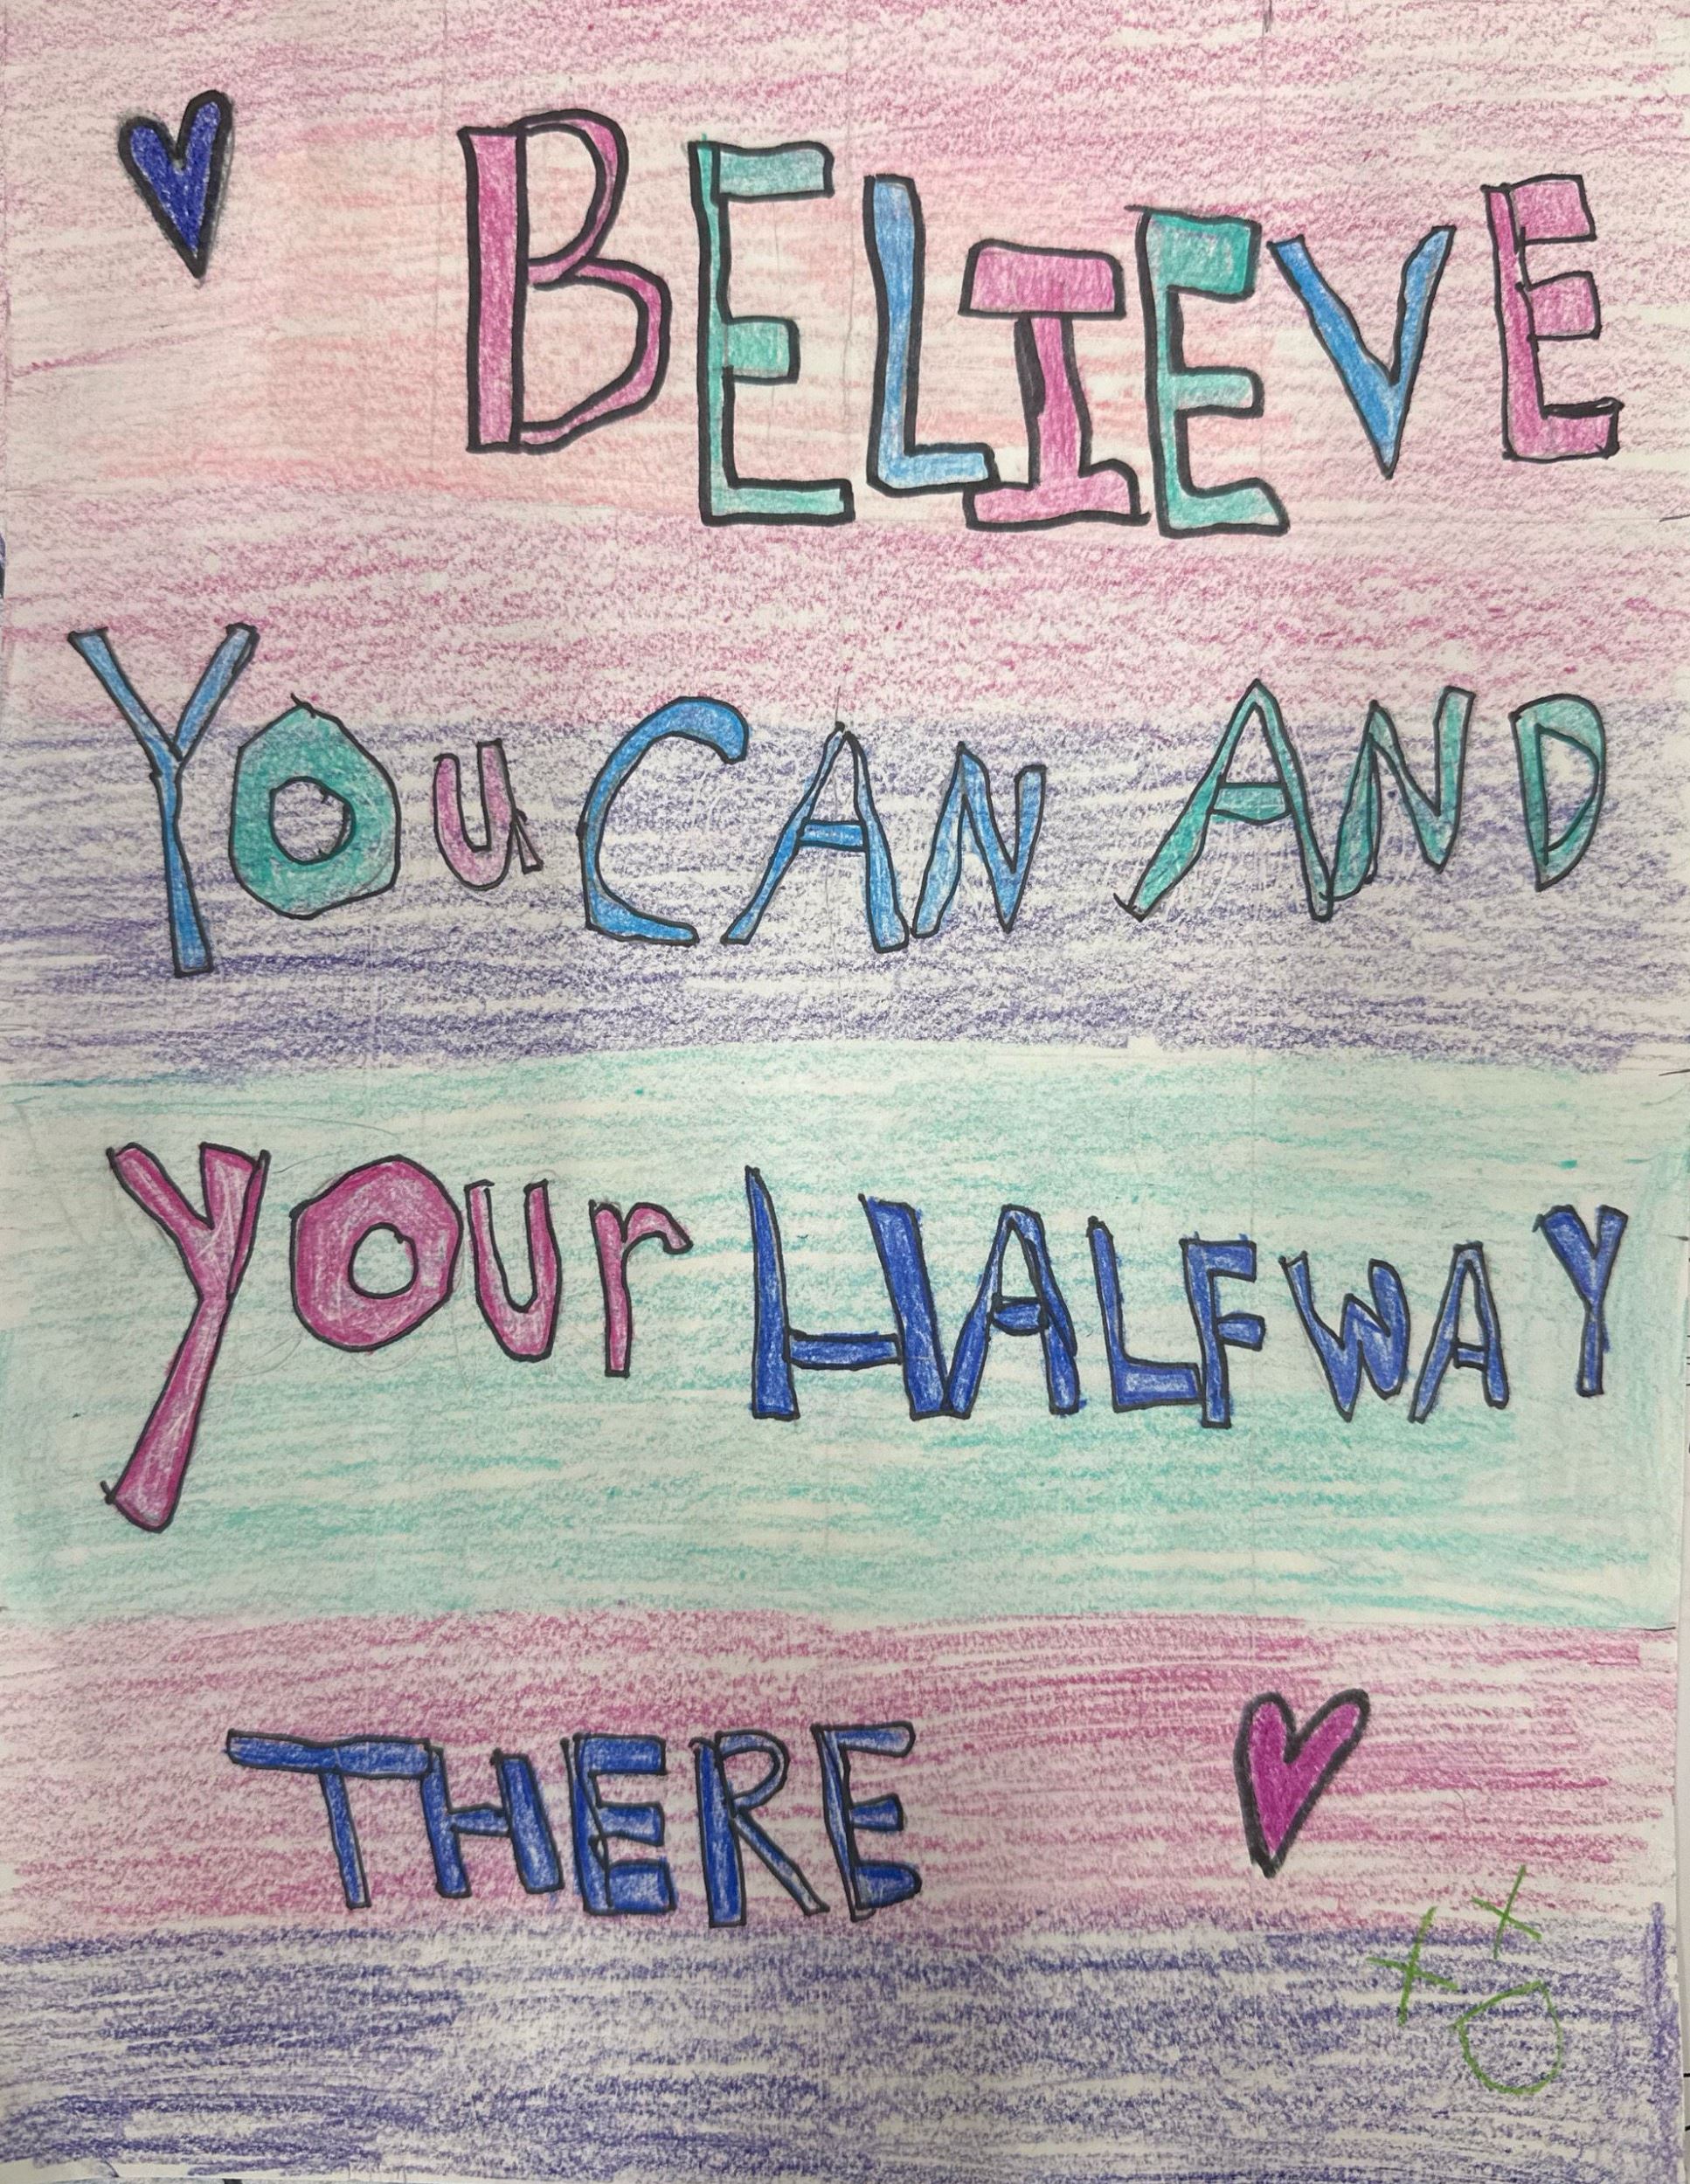 BELIEVE
YOu CAN AND
YOUr HALFWAY
THERE